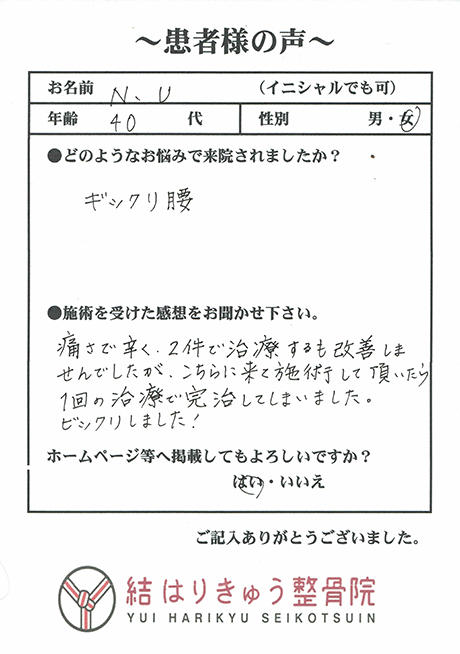 ～患者様の声～
お名前 N.U （イニシャルでも可）
年齢 40 代 性別 男・女
●どのようなお悩みで来院されましたか？
ギックリ腰
●施術を受けた感想をお聞かせ下さい。
痛さで辛く、2件で治療するも改善しま
せんでしたが、こちらに来て施術して頂いたら
1回の治療で完治してしまいました。
ビックリしました！
ホームページ等へ掲載してもよろしいですか？
はい・いいえ
ご記入ありがとうございました。
結 はりきゅう整骨院
YUI HARIKYU SEIKOTSUIN